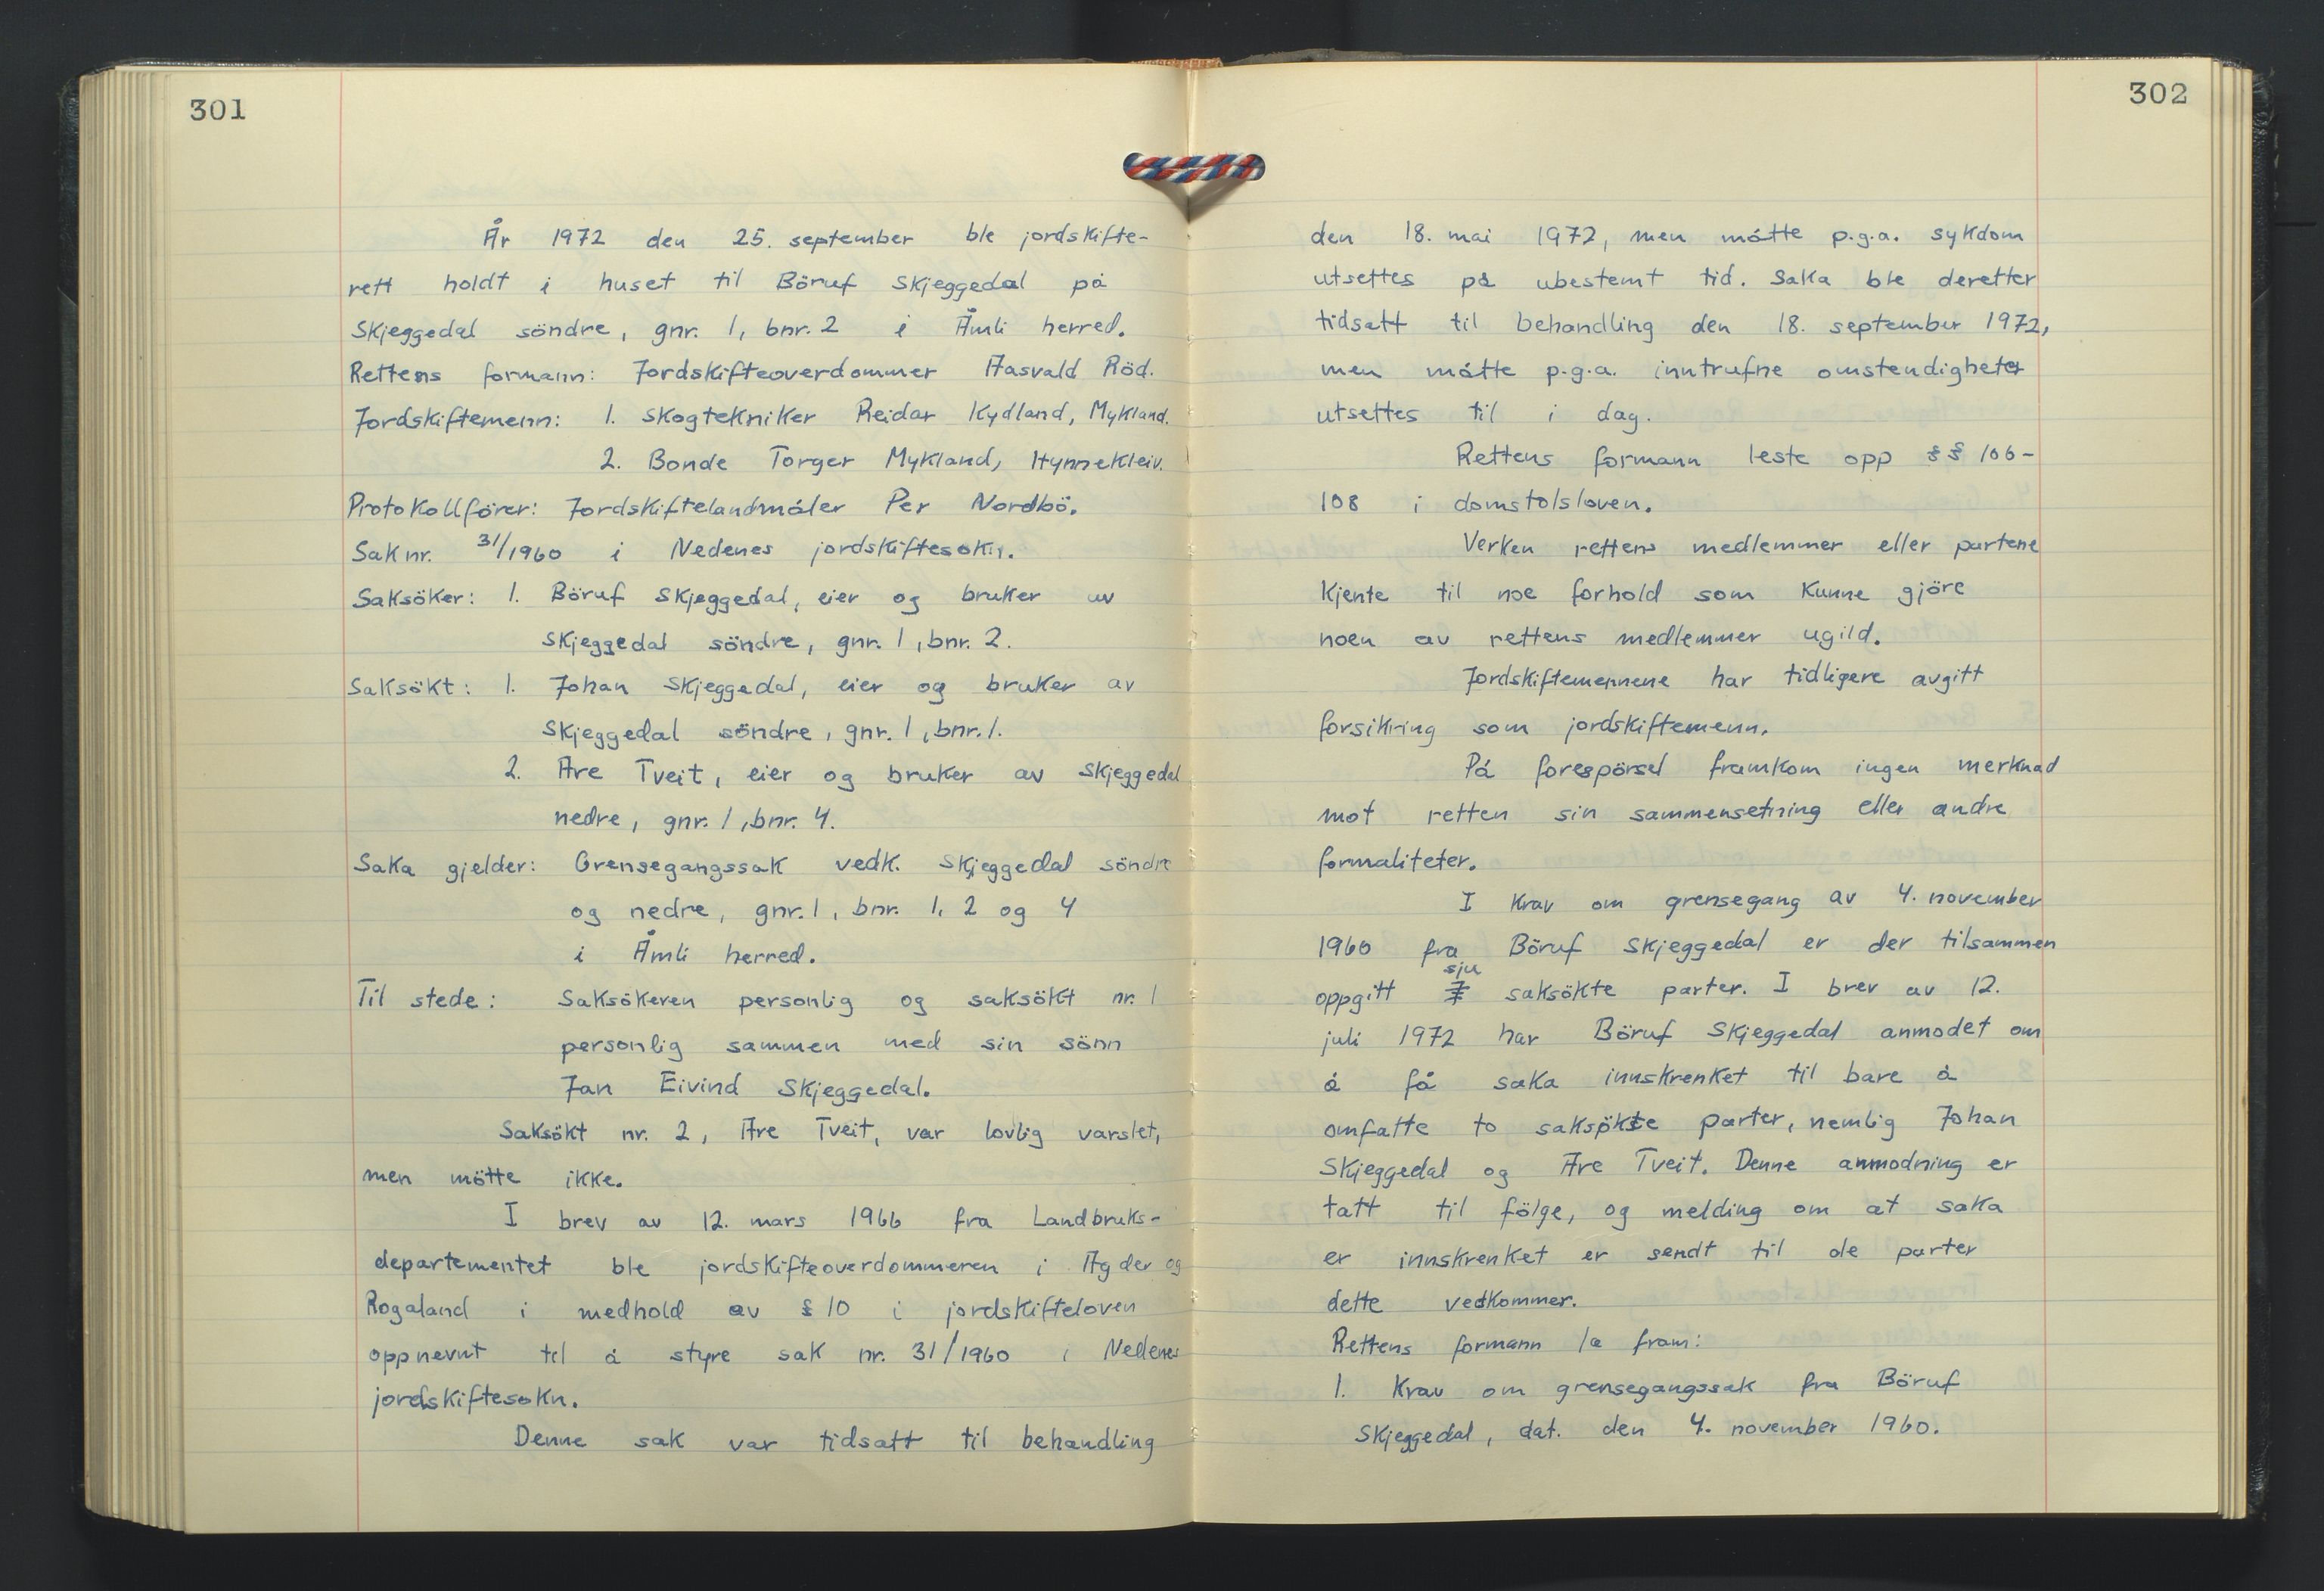 301
År 1972 den 25. september ble jordskifte-
rett holdt i huset til Böruf Skjeggedal på
Skjeggedal söndre, gnr. 1, bnr. 2 i Åmli herred.
Rettens formann: Jordskifteoverdommer Aasvald Röd.
Jordskiftemenn: 1. Skogtekniker Reidar Kydland, Mykland.
2. Bonde Torger Mykland, Hynnekleiv.
Protokollförer: Jordskiftelandmåler Per Nordbö.
Sak nr. 31/1960 i Nedenes jordskiftesokn.
Saksöker: 1. Böruf Skjeggedal, eier og bruker av
Skjeggedal söndre, gnr. 1, bnr. 2.
Saksökt: 1. Johan Skjeggedal, eier og bruker av
Skjeggedal söndre, gnr. 1, bnr. 1.
2. Are Tveit, eier og bruker av Skjeggedal
nedre, gnr. 1, bnr. 4.
Saka gjelder: Grensegangssak vedk. Skjeggedal söndre
og nedre, gnr. 1, bnr. 1, 2 og 4
i Åmli herred.
Til stede: Saksökeren personlig og saksökt nr. 1
personlig sammen med sin sönn
Jan Eivind Skjeggedal.
Saksökt nr. 2, Are Tveit, var lovlig varslet,
men mötte ikke.
I brev av 12. mars 1966 fra Landbruks-
departementet ble jordskifteoverdommeren i Agder og
Rogaland i medhold av § 10 i jordskifteloven
oppnevnt til å styre sak nr. 31/1960 i Nedenes
jordskiftesokn.
Denne sak var tidsatt til behandling
302
den 18. mai 1972, men måtte p.g.a. sykdom
utsettes på ubestemt tid. Saka ble deretter
tidsatt til behandling den 18. september 1972,
men måtte p.g.a. inntrufne omstendigheter
utsettes til i dag.
Rettens formann leste opp §§ 106-
108 i domstolsloven.
Verken rettens medlemmer eller partene
kjente til noe forhold som kunne gjöre
noen av rettens medlemmer ugild.
Jordskiftemennene har tidligere avgitt
forsikring som jordskiftemenn.
På forespörsel framkom ingen merknad
mot retten sin sammensetning eller andre
formaliteter.
I krav om grensegang av 4. november
1960 fra Böruf Skjeggedal er der tilsammen
oppgitt sju saksökte parter. I brev av 12.
juli 1972 har Böruf Skjeggedal anmodet om
å få saka innskrenket til bare å
omfatte to saksökte parter, nemlig Johan
Skjeggedal og Are Tveit. Denne anmodning er
tatt til fölge, og melding om at saka
er innskrenket er sendt til de parter
dette vedkommer.
Rettens formann la fram:
1. Krav om grensegangssak fra Böruf
Skjeggedal, dat. den 4. november 1960.